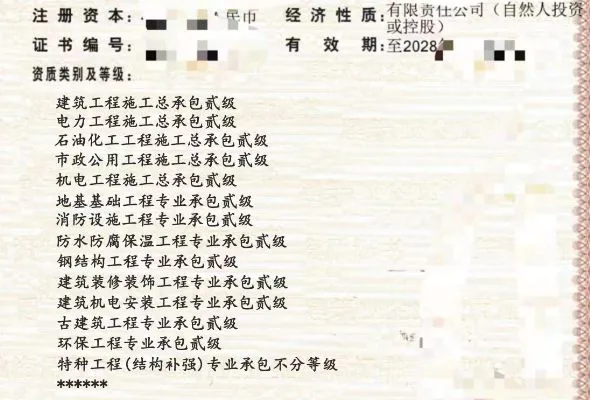 注册资本: 民币
经济性质: 有限责任公司（自然人投资
或控股）
证书编号:
有效期: 至2028
资质类别及等级:
建筑工程施工总承包贰级
电力工程施工总承包贰级
石油化工工程施工总承包贰级
市政公用工程施工总承包贰级
机电工程施工总承包贰级
地基基础工程专业承包贰级
消防设施工程专业承包贰级
防水防腐保温工程专业承包贰级
钢结构工程专业承包贰级
建筑装修装饰工程专业承包贰级
建筑机电安装工程专业承包贰级
古建筑工程专业承包贰级
环保工程专业承包贰级
特种工程(结构补强)专业承包不分等级
******